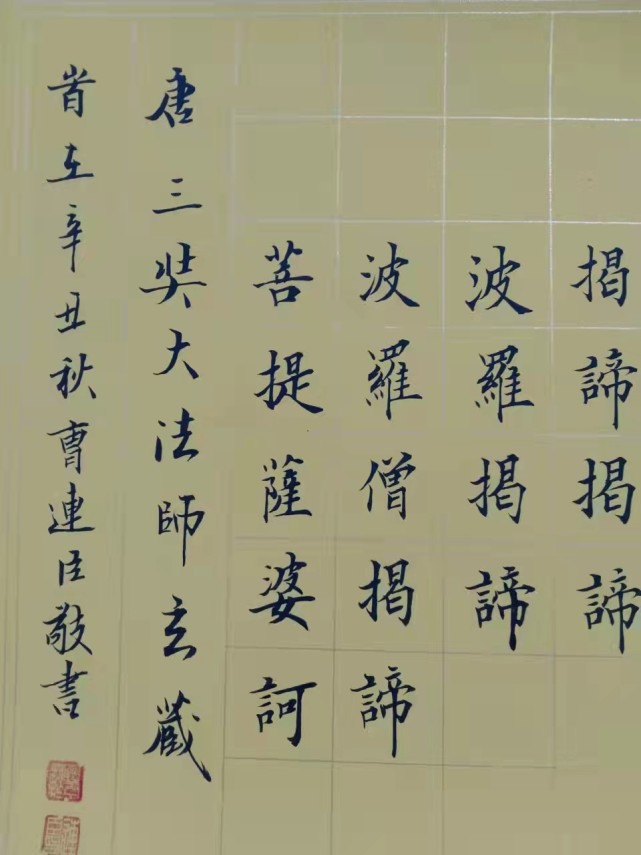 揭諦揭諦
波羅揭諦
波羅僧揭諦
菩提薩婆訶
唐三奘大法師玄藏
旹在辛丑秋曹連臣敬書